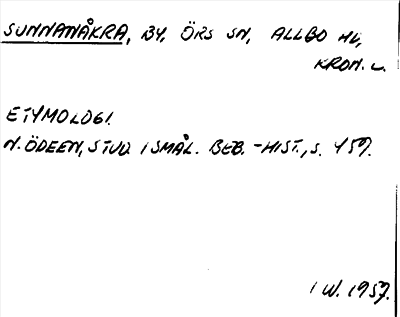 SUNNANÅKRA, BY, ÖRS SN, ALLBO HD,
KRON. L.
ETYMOLOGI.
N. ÖDEEN, STUD I SMÅL. BEB.-HIST., S. 457.
I W. 1957.